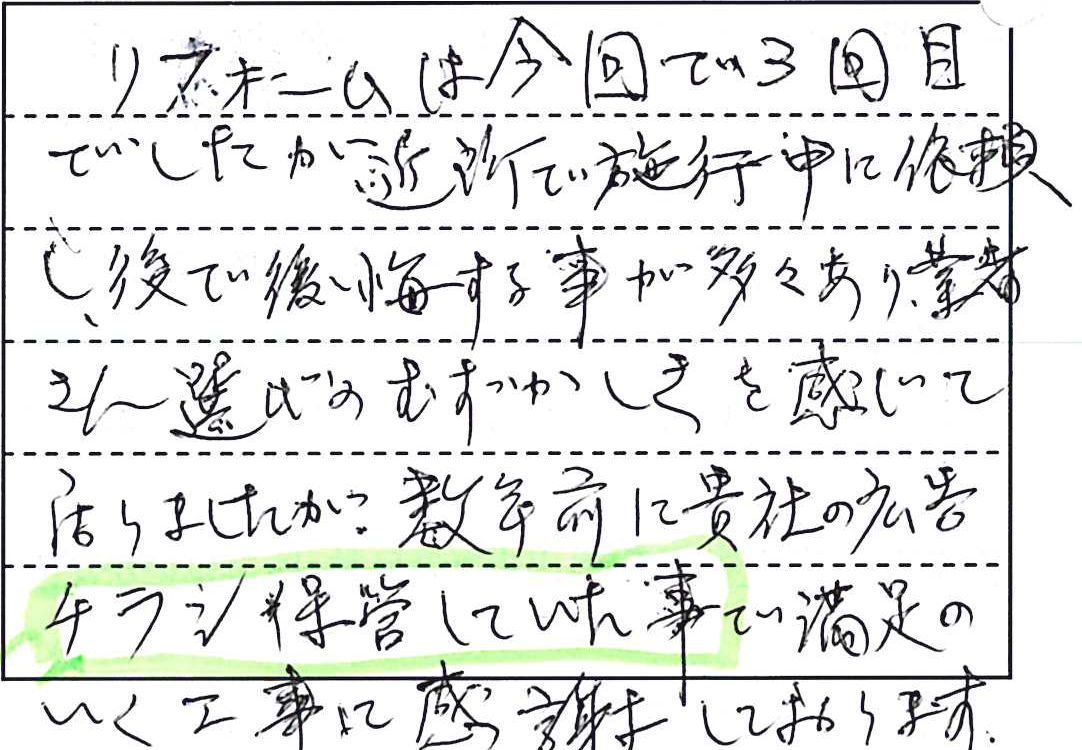 リフォームは今回で3回目
でしたが近所で施行中に依頼
し、後で後悔する事が多々あり、業者
さん選びのむずかしさを感じて
居りましたが、数年前に貴社の広告
チラシ保管していた事で満足の
いく工事に感謝しております。